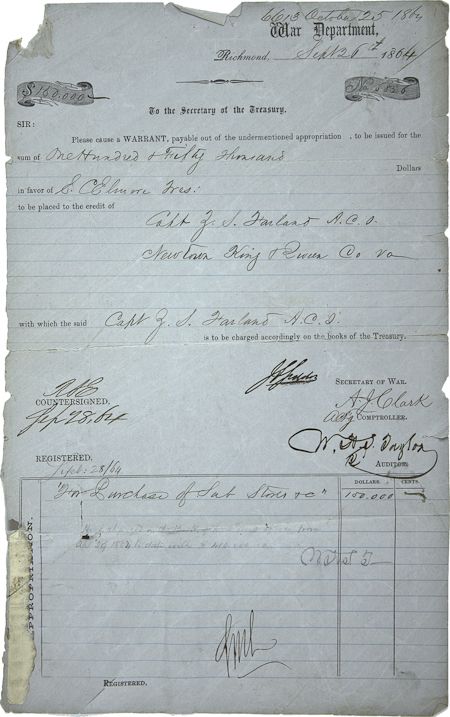 6613 October 25 1864
War Department,
Richmond, Sept 26th 1864
$150.000
No.
To the Secretary of the Treasury.
SIR:
Please cause a WARRANT, payable out of the undermentioned appropriation , to be issued for the
sum of One Hundred & Fifty Thousand
Dollars
in favor of E. C Elmore Tres:
to be placed to the credit of
Capt Z. S. Farland A.C.S.
Newtown King & Queen Co Va
with which the said Capt Z. S. Farland A.C.S.
is to be charged accordingly on the books of the Treasury.
COUNTERSIGNED.
Sep 28, 64
SECRETARY OF WAR.
A.J. Clark
Actg COMPTROLLER.
W. H. S. Taylor
AUDITOR.
REGISTERED.
Sept: 28/64
DOLLARS. CENTS.
"For Purchase of Sub Stores &c" 150.000 —
APPROPRIATION.
REGISTERED.